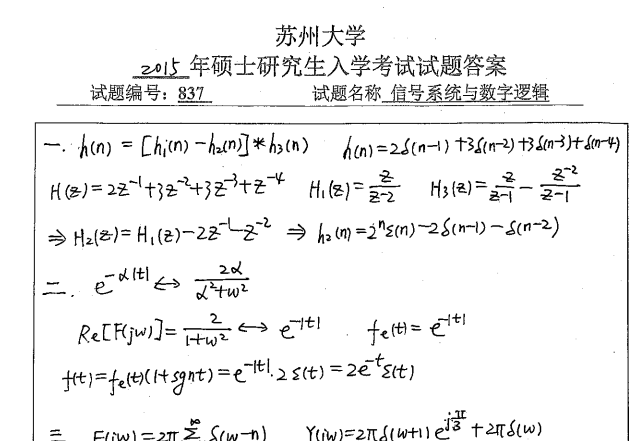 苏州大学
2015 年硕士研究生入学考试试题答案
试题编号：837 试题名称 信号系统与数字逻辑
一. h(n) = [h₁(n) - h₂(n)] * h₃(n) h(n) = 2δ(n-1) + 3δ(n-2) + 3δ(n-3) + δ(n-4)
H(z) = 2z⁻¹ + 3z⁻² + 3z⁻³ + z⁻⁴ H₁(z) = z/(z-2) H₃(z) = z/(z-1) - z⁻²/(z-1)
⇒ H₂(z) = H₁(z) - 2z⁻¹ - z⁻² ⇒ h₂(n) = 2ⁿε(n) - 2δ(n-1) - δ(n-2)
二. e^(-α|t|) ↔ 2α/(α²+w²)
Re[F(jw)] = 2/(1+w²) ↔ e^(-|t|) fₑ(t) = e^(-|t|)
f(t) = fₑ(t)(1+sgnt) = e^(-|t|)·2ε(t) = 2e^(-t)ε(t)
三 F(jw) = 2π Σ δ(w-n) Y(jw) = 2πδ(w+1)e^(jπ/3) + 2πδ(w)